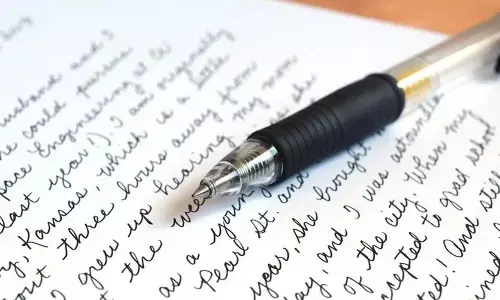 husband and I
he could pursue
pace Engineering at
last year!). I am originally
Kansas, which is a little
out three hours away from
I grew up hearing my mom
t the wee she
as a young
Pearl St. and
year, she brought
ay, and I was
of the city. When my
cepted to grad school
ed! And sti
ined